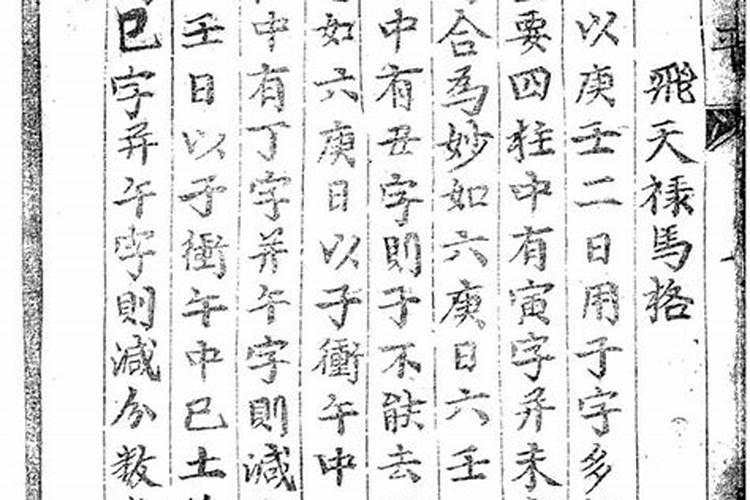 飛天禄馬格
以庚壬二日用子字多
要四柱中有寅字并未
合為妙如六庚日六壬
中有丑字則子不能去
如六庚日以子衝午中
中有丁字并午字則減
壬日以子衝午中巳土
巳字并午字則減分数